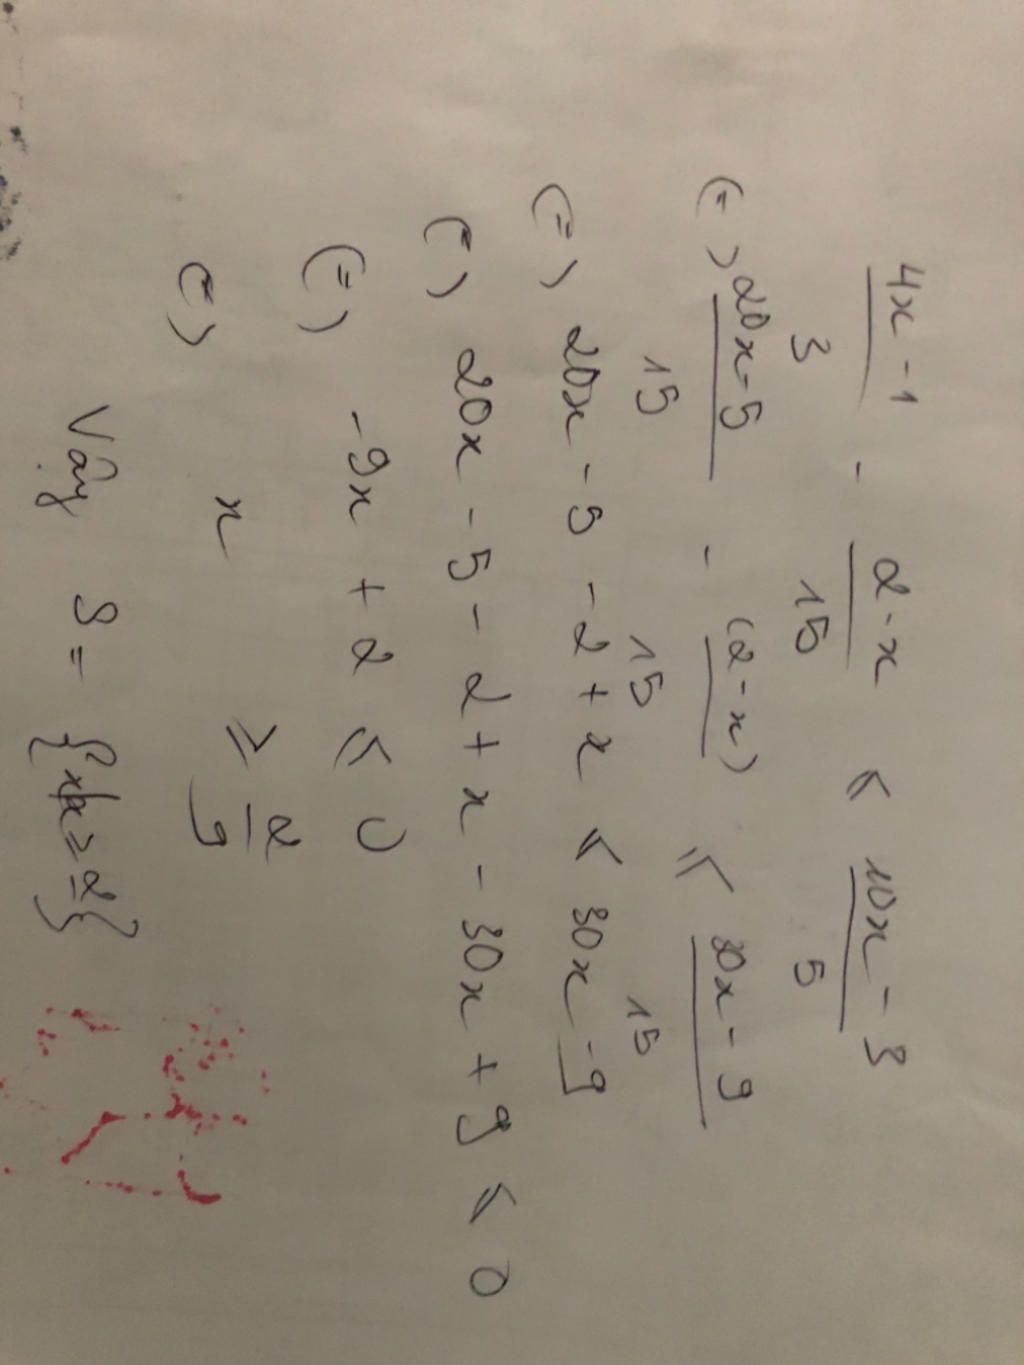 4x - 1 / 3 - 2 - x / 15 ≤ 10x - 3 / 5
(=) 20x - 5 / 15 - (2 - x) / 15 ≤ 30x - 9 / 15
(=) 20x - 5 - 2 + x ≤ 30x - 9
(=) 20x - 5 - 2 + x - 30x + 9 ≤ 0
(=) -9x + 2 ≤ 0
(=) x ≥ 2 / 9
Vậy S = {x/x ≥ 2}